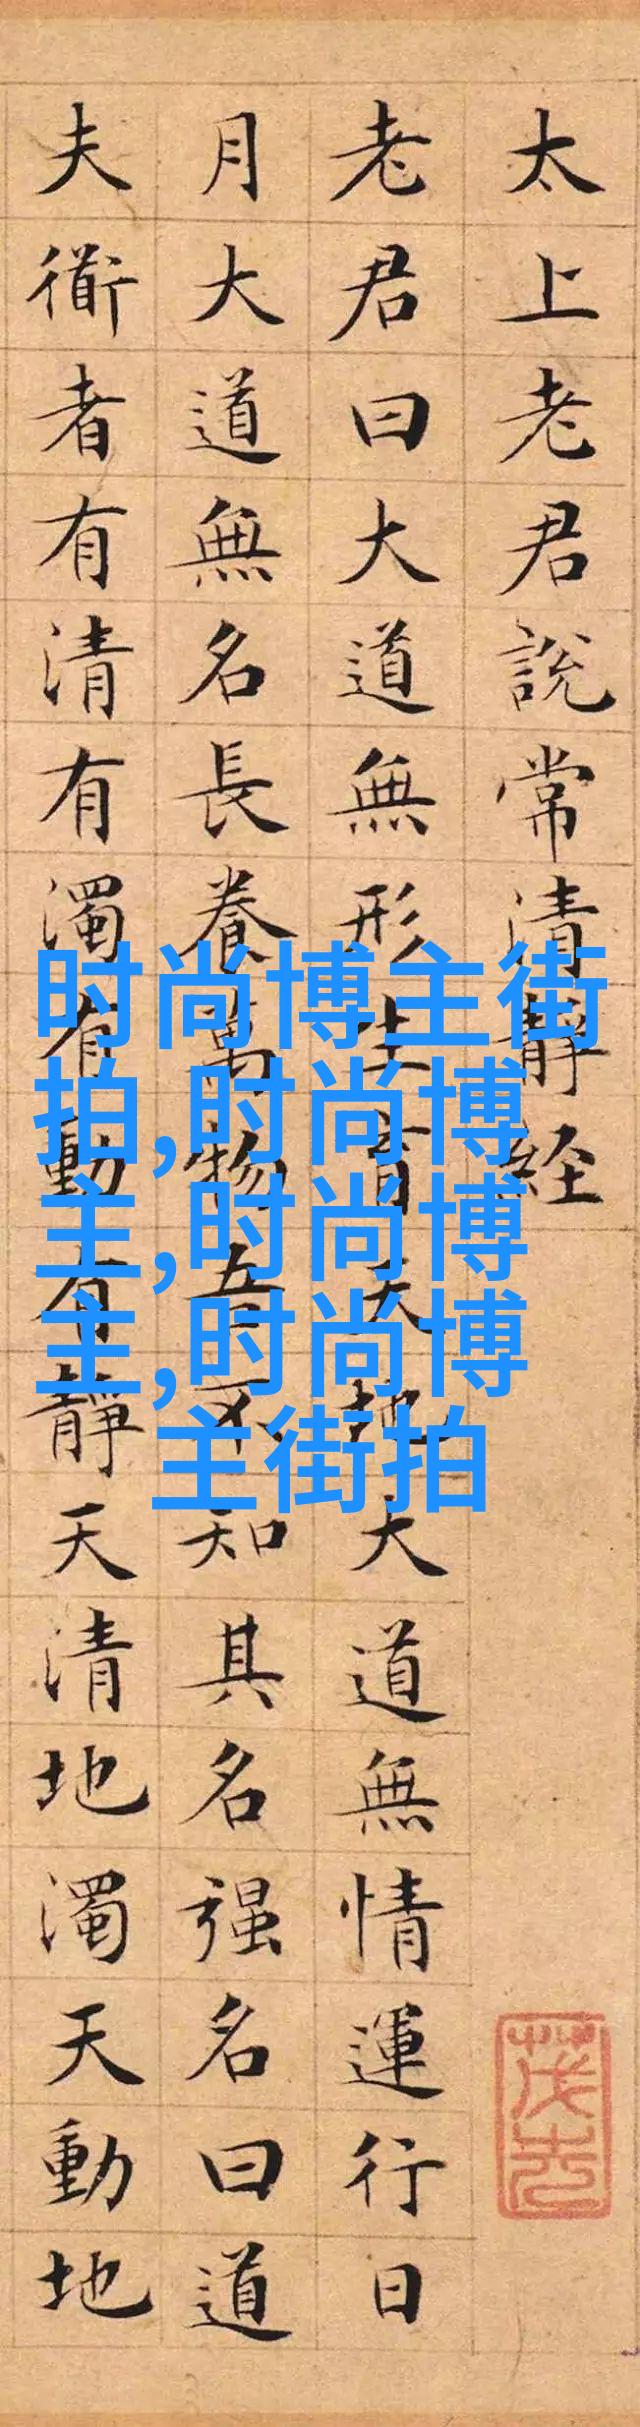 太上老君說常清靜経
老君曰大道無形生育天地大道無情運行日
月大道無名長養萬物吾不知其名强名曰道
夫衜者有清有濁有動有靜天清地濁天動地
时尚博主街
拍,时尚博
主,时尚博
主,时尚博
主街拍